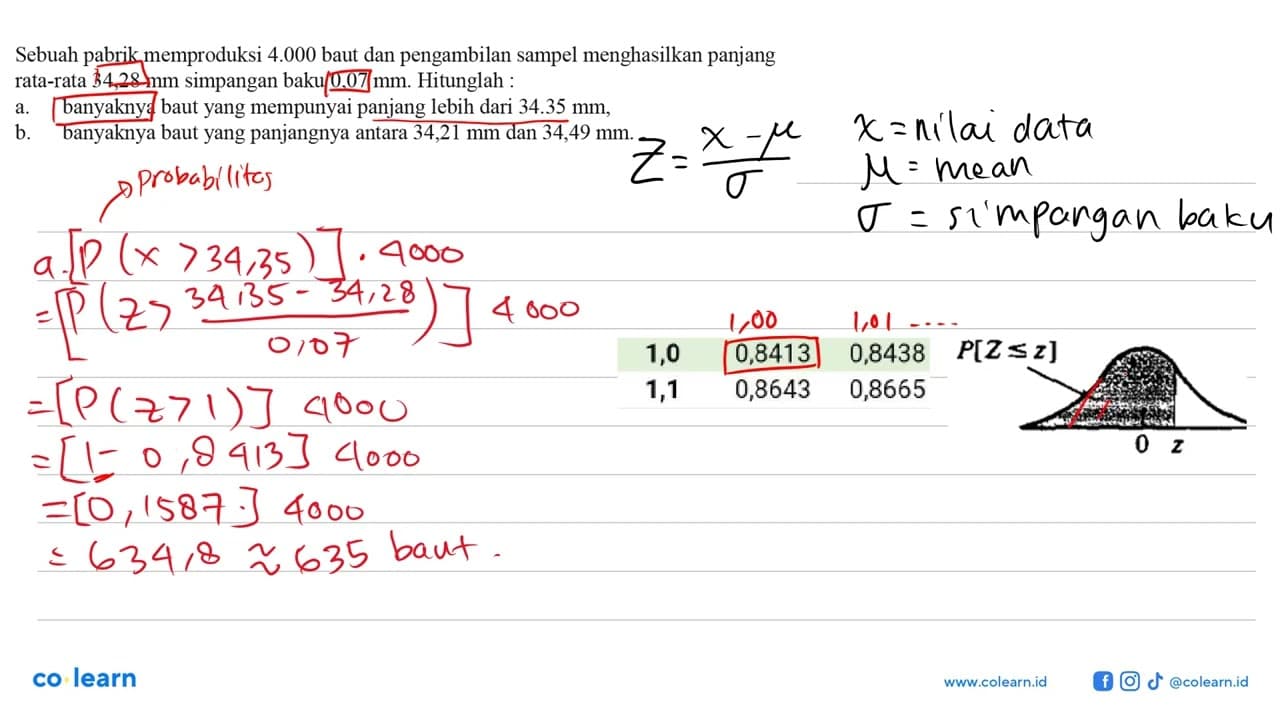 Sebuah pabrik memproduksi 4.000 baut dan pengambilan sampel menghasilkan panjang
rata-rata 34,28 mm simpangan baku 0,07 mm. Hitunglah :
a. banyaknya baut yang mempunyai panjang lebih dari 34.35 mm,
b. banyaknya baut yang panjangnya antara 34,21 mm dan 34,49 mm.
Z = (x - μ) / σ
x = nilai data
μ = mean
σ = simpangan baku
probabilitas
a. [P (x > 34,35)] . 4000
= [P (z > (34,35 - 34,28) / 0,07)] 4000
= [P (z > 1)] 4000
= [1 - 0,8413] 4000
= [0,1587.] 4000
= 634,8 ≈ 635 baut.
1,00 1,01 ----
1,0 0,8413 0,8438
1,1 0,8643 0,8665
P[Z ≤ z]
0 z
co learn
www.colearn.id
@colearn.id